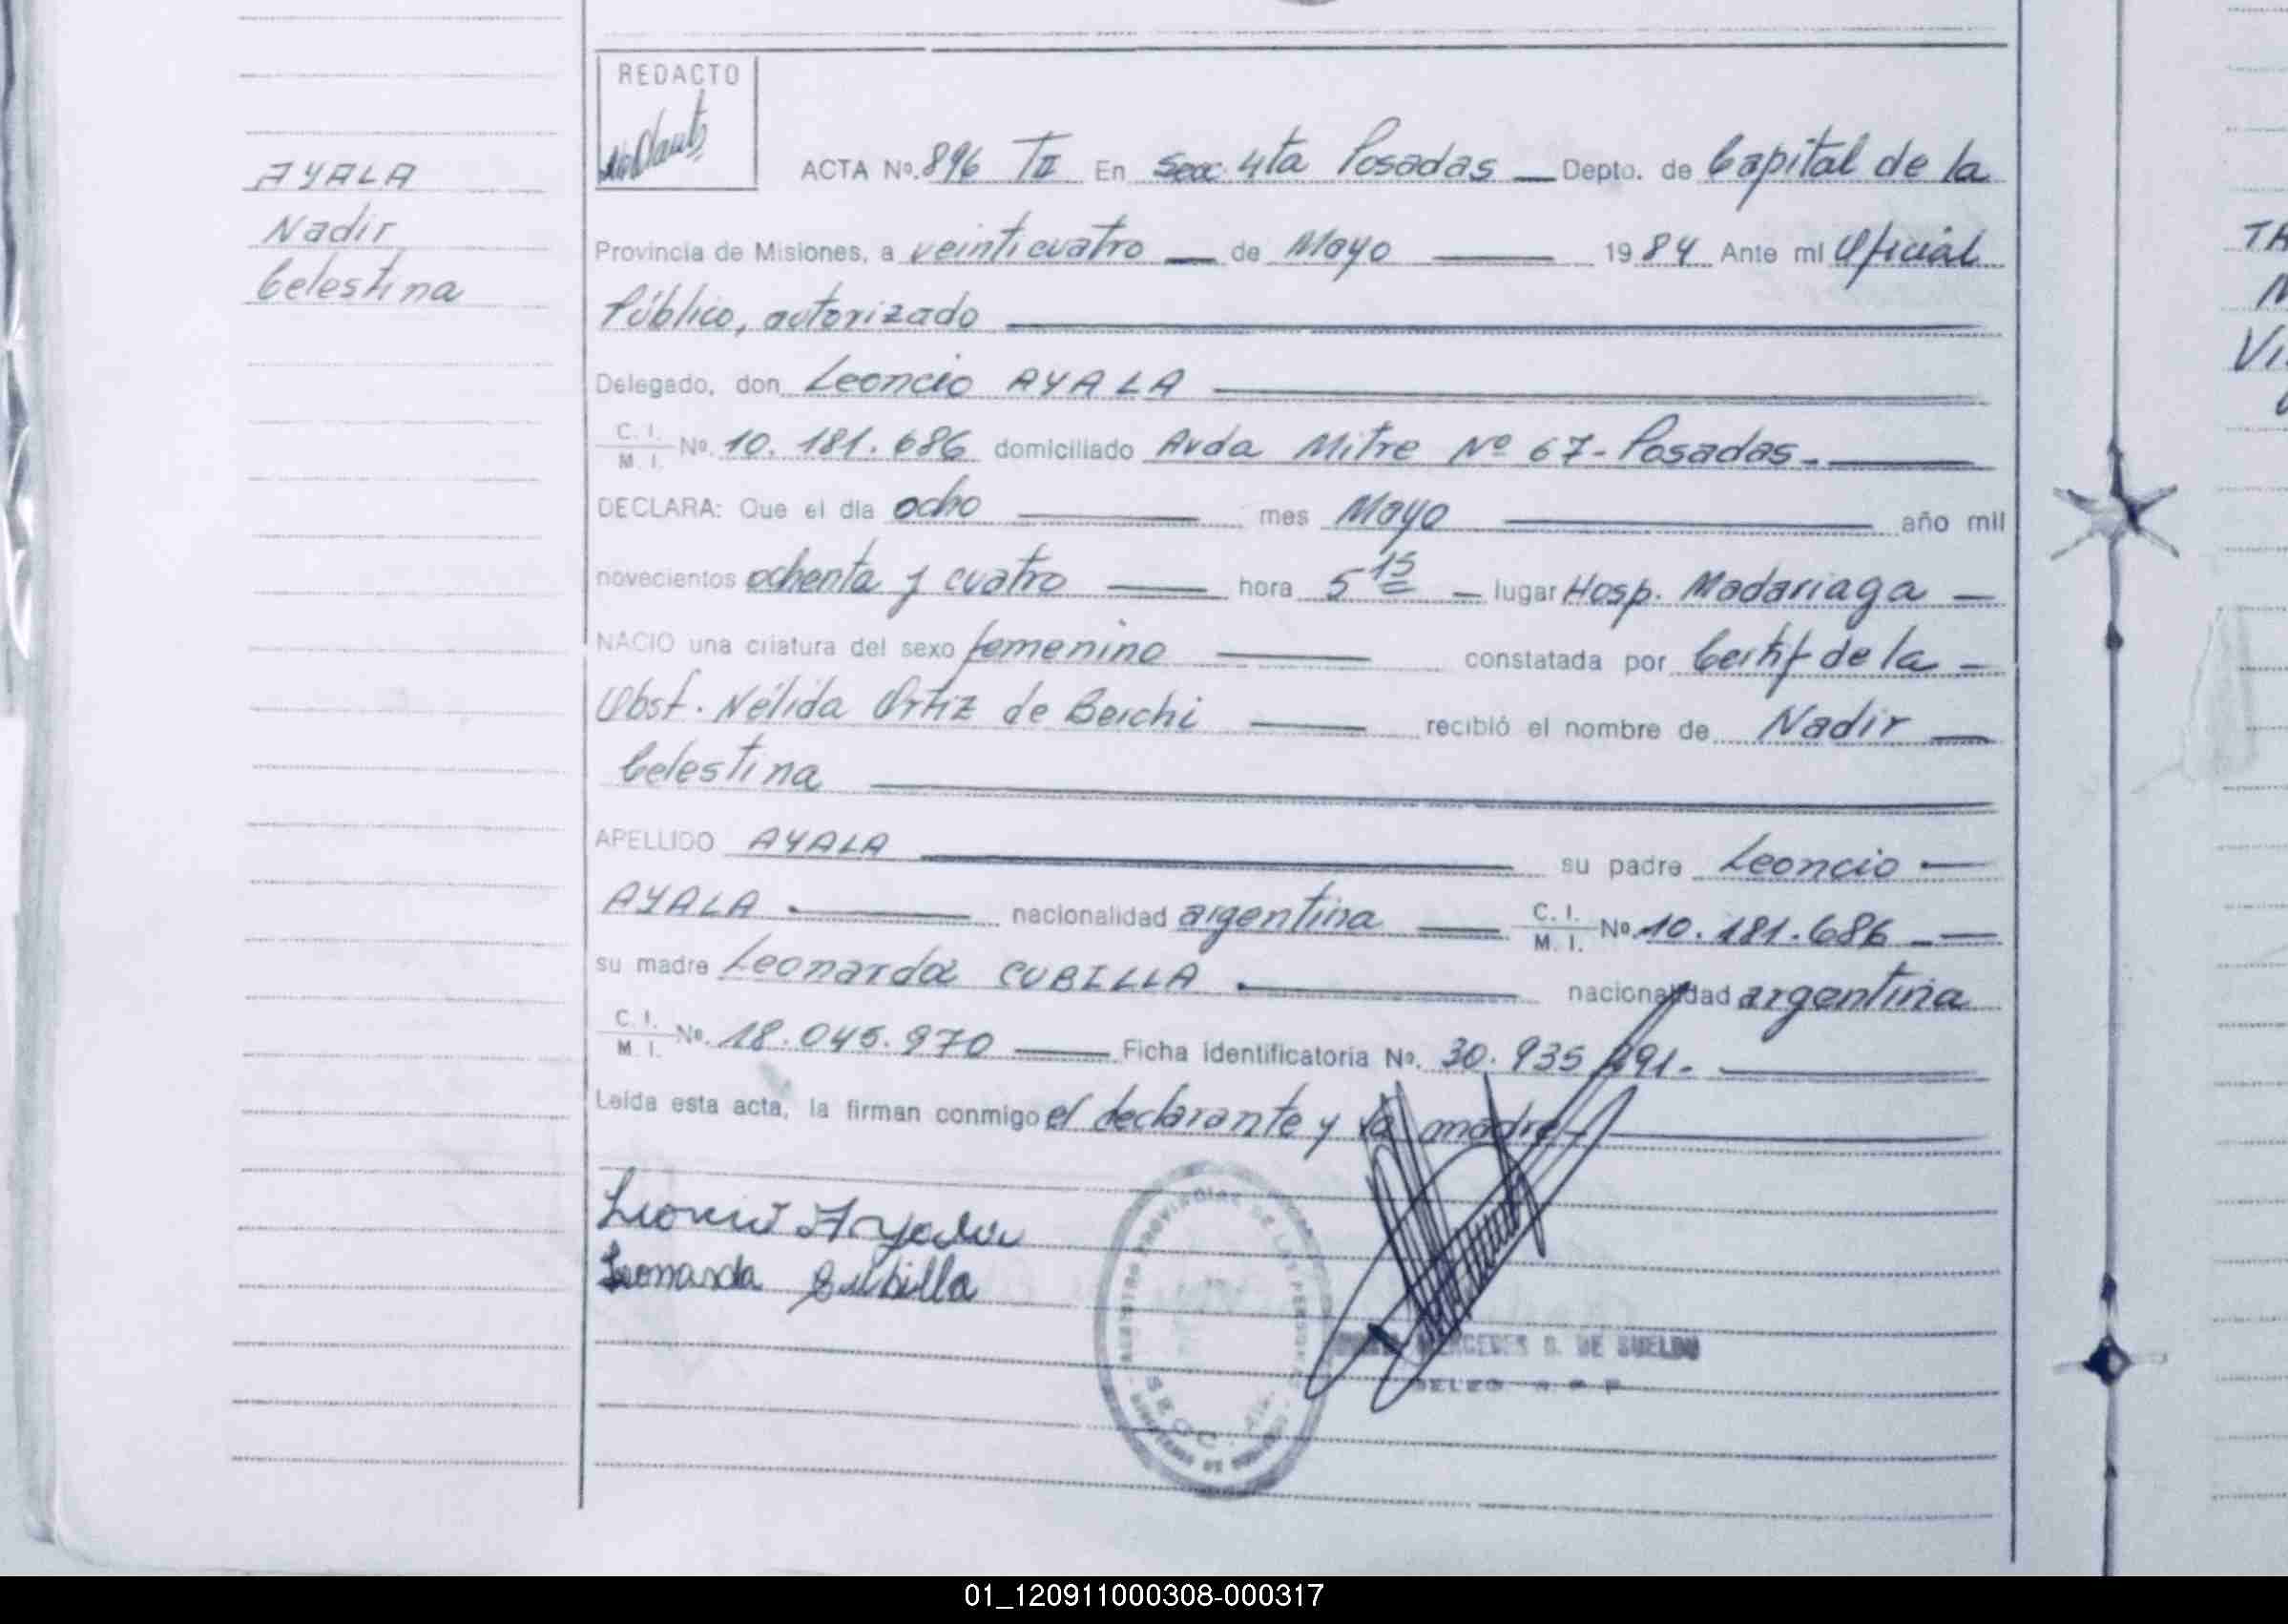 REDACTO
AYALA
Nadir
Celestina
ACTA Nº. 896 TII En Secc 4ta Posadas — Depto. de Capital de la
Provincia de Misiones, a veinticuatro — de Mayo — 1984 Ante mí Oficial
Público, autorizado
Delegado, don Leoncio AYALA
C. I.
M. I. Nº. 10.181.686 domiciliado Avda Mitre Nº 67-Posadas.-
DECLARA: Que el día ocho — mes Mayo — año mil
novecientos ochenta y cuatro — hora 5 15 — lugar Hosp. Madariaga —
NACIO una criatura del sexo femenino — constatada por Certif de la —
Obst. Nélida Ortiz de Beichi — recibió el nombre de Nadir —
Celestina
APELLIDO AYALA — su padre Leoncio —
AYALA — nacionalidad argentina — C. I. M. I. Nº. 10.181.686 —
su madre Leonarda CUBILLA — nacionalidad argentina
C. I.
M. I. Nº. 18.045.970 — Ficha identificatoria Nº. 30.935 291.-
Leída esta acta, la firman conmigo el declarante y la madre-
Leoncio Ayala
Leonarda Cubilla
MERCEDES G. DE SUELDO
SECC. 4ta.
TA
Vi
01_120911000308-000317